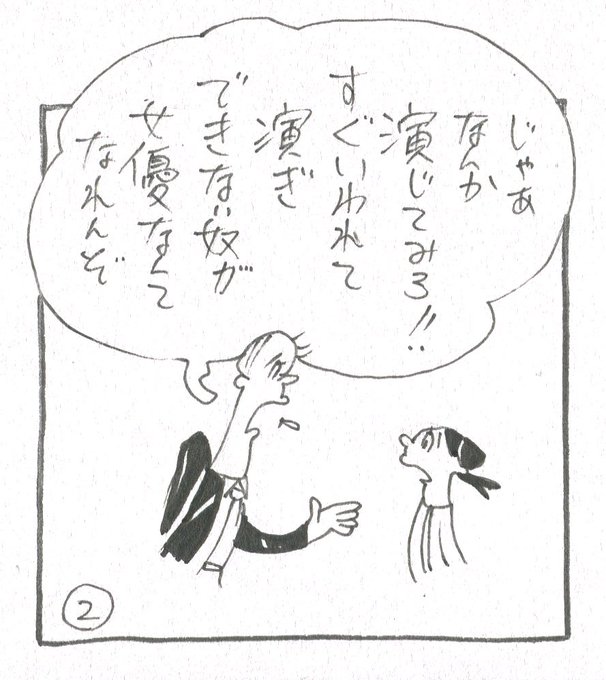 じゃあ
なんか
演じてみろ!!
すぐいわれて
演ぎ
できない奴が
女優なんて
なれんぞ
②